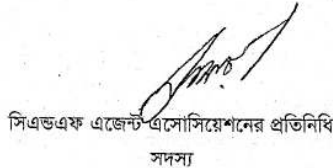 সিএন্ডএফ এজেন্ট এসোসিয়েশনের প্রতিনিধি
সদস্য